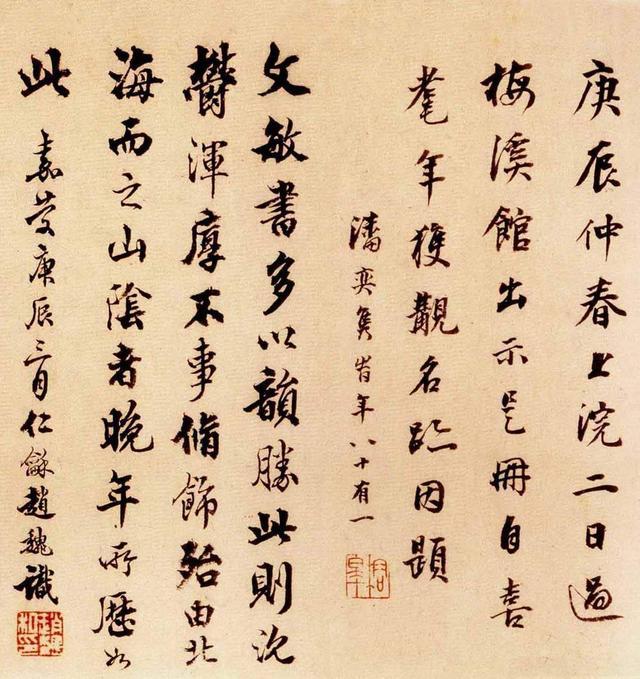 庚辰仲春上浣二日過
梅溪館出示是冊自喜
耄年獲觀名跡因題
潘奕雋旹年八十有一
文敏書多以韻勝此則沈
鬱渾厚不事脩飾殆由北
海而之山陰者晚年所歷如
此 嘉慶庚辰三月仁龢趙魏識